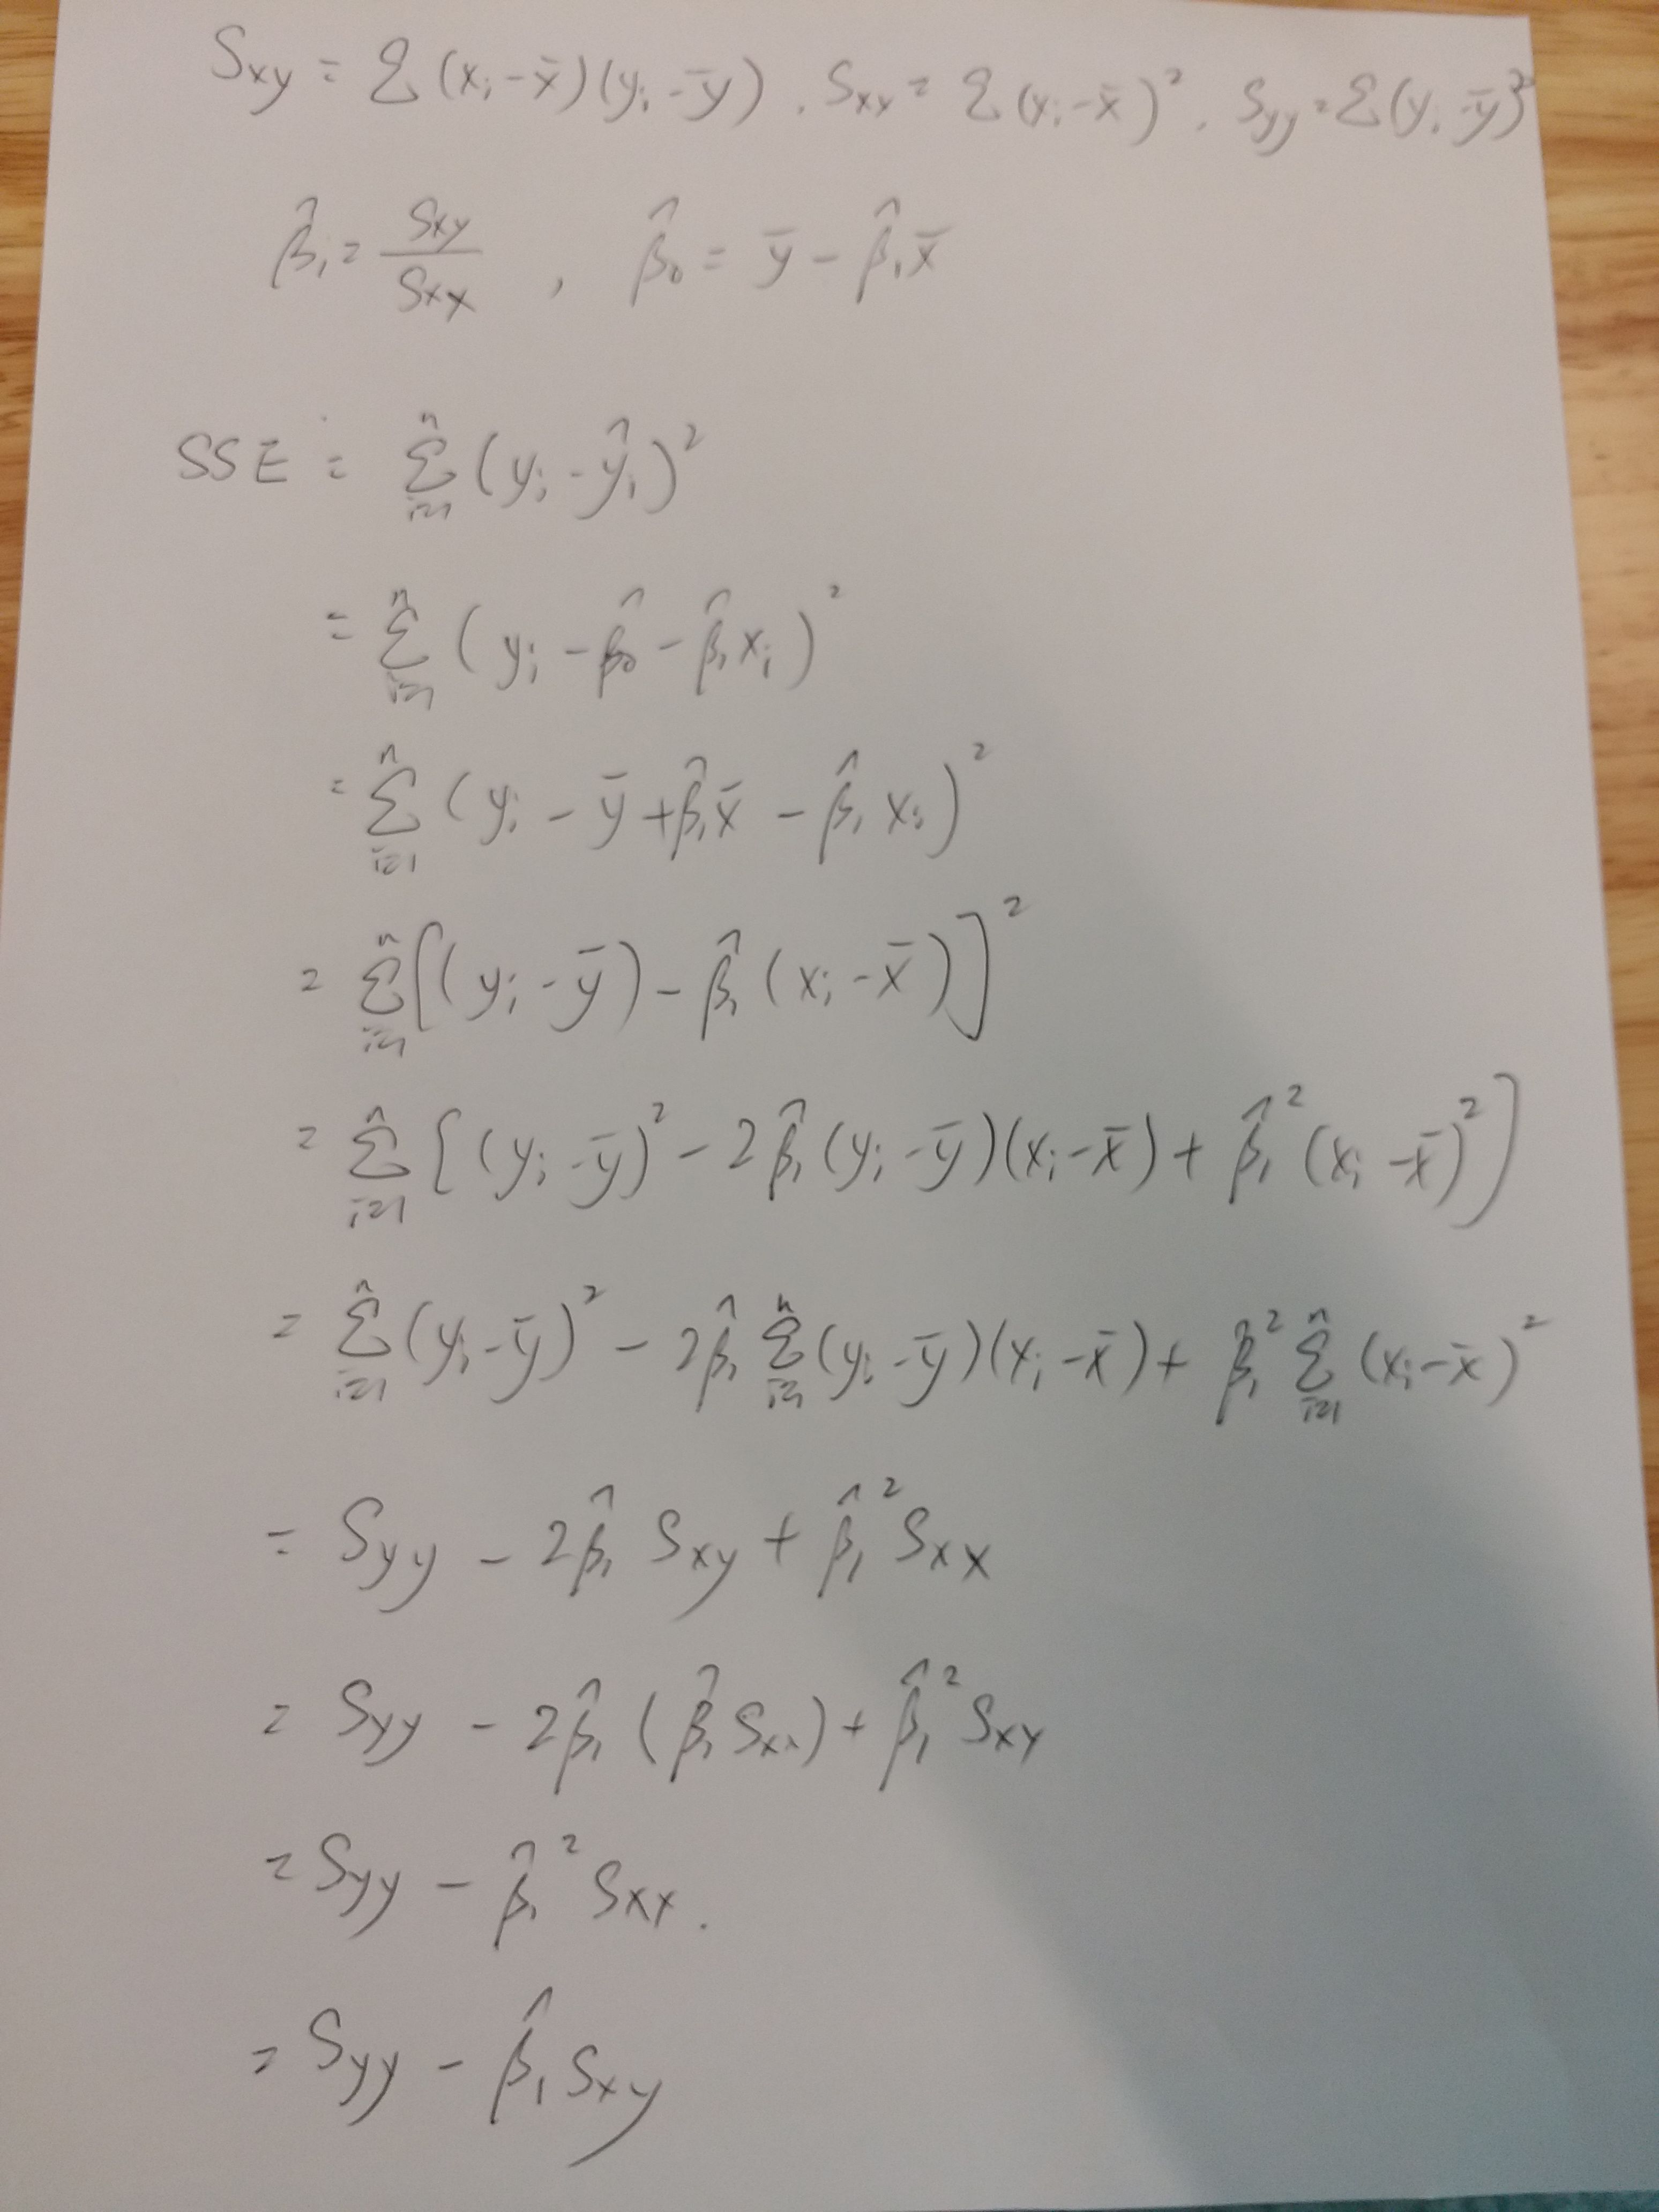 Sxy = Σ(xᵢ-x̄)(yᵢ-ȳ). Sxx = Σ(xᵢ-x̄)². Syy = Σ(yᵢ-ȳ)²
β̂₁ = Sxy/Sxx , β̂₀ = ȳ - β̂₁x̄
SSE = Σᵢ₌₁ⁿ (yᵢ - ŷᵢ)²
= Σᵢ₌₁ⁿ (yᵢ - β̂₀ - β̂₁xᵢ)²
= Σᵢ₌₁ⁿ (yᵢ - ȳ + β̂₁x̄ - β̂₁xᵢ)²
= Σᵢ₌₁ⁿ [(yᵢ - ȳ) - β̂₁(xᵢ - x̄)]²
= Σᵢ₌₁ⁿ [(yᵢ - ȳ)² - 2β̂₁(yᵢ - ȳ)(xᵢ - x̄) + β̂₁²(xᵢ - x̄)²]
= Σᵢ₌₁ⁿ (yᵢ - ȳ)² - 2β̂₁ Σᵢ₌₁ⁿ (yᵢ - ȳ)(xᵢ - x̄) + β₁² Σᵢ₌₁ⁿ (xᵢ - x̄)²
= Syy - 2β̂₁ Sxy + β̂₁² Sxx
= Syy - 2β̂₁ (β̂₁ Sxx) + β̂₁² Sxy
= Syy - β̂₁² Sxx.
= Syy - β̂₁ Sxy